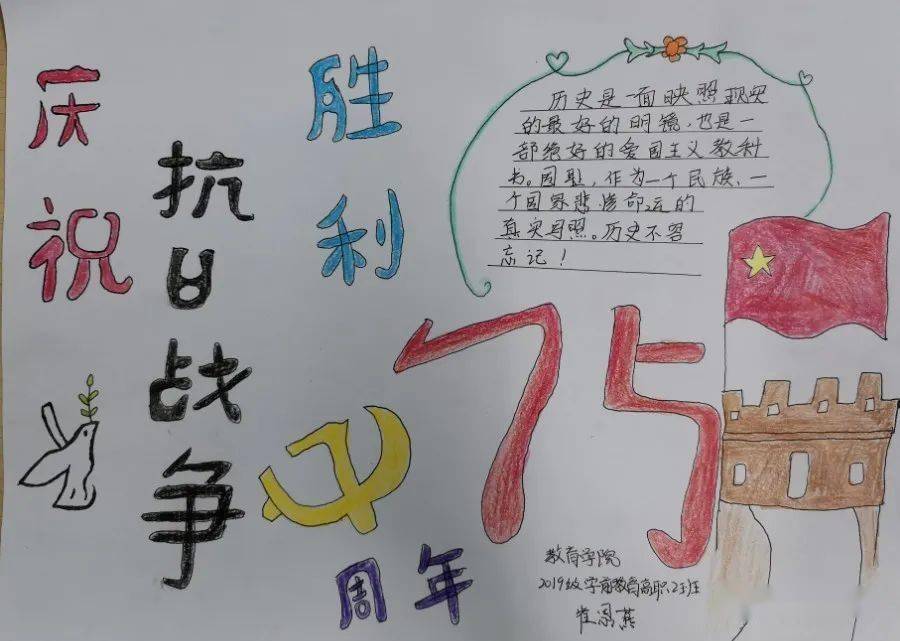 庆祝
抗日战争
胜利
75
周年
历史是一面映照现实
的最好的明镜,也是一
部绝好的爱国主义教科
书。国耻,作为一个民族、一
个国家悲惨命运的
真实写照。历史不容
忘记!
教育学院
2019级学前教育高职2班